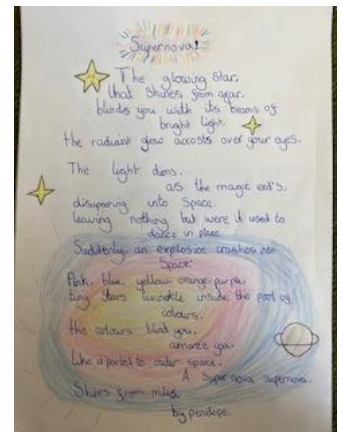 Supernova!
The glowing star,
that shines from afar.
blinds you with its beams of
bright light.
the radiant glow accosts over your eyes.
The light dims.
as the magic end's.
disapering into Space.
leaving nothing but were it used to
dance in place
Suddenly an explosion crashes into
Space.
Pink. blue. yellow. orange. purple.
tiny stars twinkle inside the pool of
colours.
the colours blind you.
amaze you.
Like a portel to outer space.
A Super nova supernova.
Shines from miles.
by penelope.